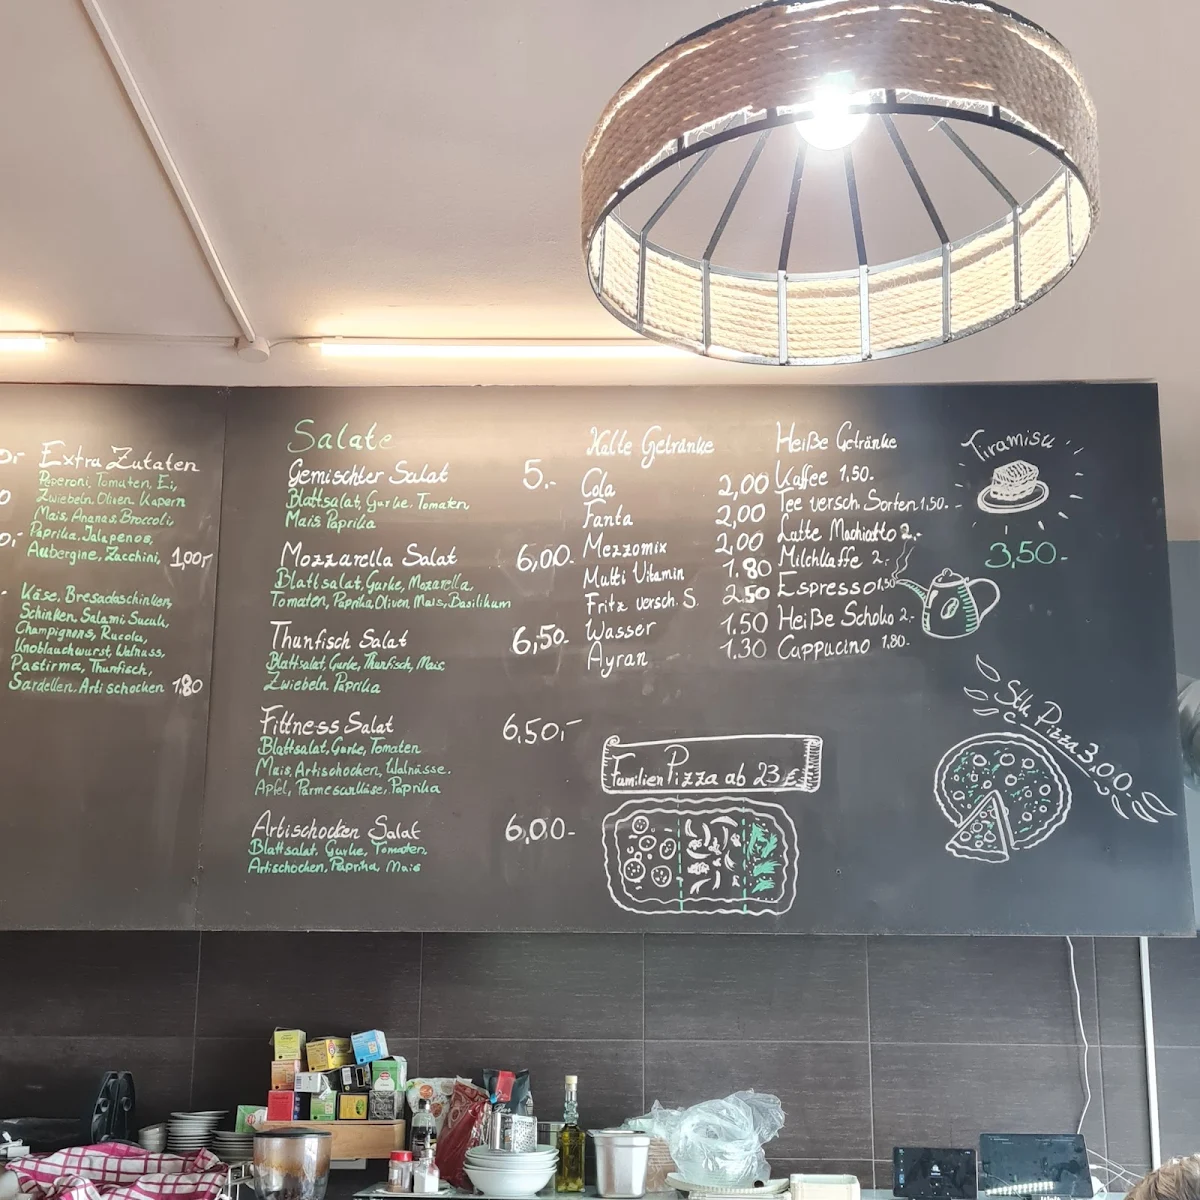 Extra Zutaten
Peperoni, Tomaten, Ei,
Zwiebeln, Oliven, Kapern
Mais, Ananas, Broccoli,
Paprika, Jalapenos,
Aubergine, Zacchini, 1,00,-
Käse, Bresadaschinken,
Schinken, Salami Sucuk,
Champignons, Rucola,
Knoblauchwurst, Walnuss,
Pastirma, Thunfisch,
Sardellen, Artischocken 1,80
Salate
Gemischter Salat 5.-
Blattsalat, Gurke, Tomaten
Mais Paprika
Mozzarella Salat 6,00.
Blattsalat, Gurke, Mozarella,
Tomaten, Paprika, Oliven, Mais, Basilikum
Thunfisch Salat 6,50.-
Blattsalat, Gurke, Thunfisch, Mais
Zwiebeln Paprika
Fittness Salat 6,50,-
Blattsalat, Gurke, Tomaten
Mais, Artischocken, Walnüsse.
Apfel, Parmesankäse, Paprika
Artischocken Salat 6,00.-
Blattsalat, Gurke, Tomaten,
Artischocken, Paprika, Mais
Kalte Getränke
Cola 2,00
Fanta 2,00
Mezzomix 2,00
Multi Vitamin 1.80
Fritz versch. S. 2.50
Wasser 1.50
Ayran 1.30
Heiße Getränke
Kaffee 1.50.
Tee versch. Sorten 1,50.-
Latte Machiatto 2.-
Milchkaffe 2.-
Espresso 1,50
Heiße Schoko 2.-
Cappucino 1,80.
Tiramisu
3,50.-
Familien Pizza ab 23 €
Stk Pizza 3,00